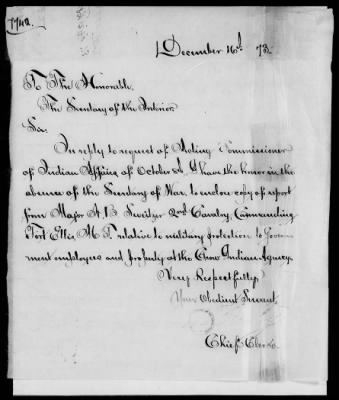 7748.
December 16th 73.
To The Honorable,
The Secretary of the Interior.
Sir:
In reply to request of Acting Commissioner
of Indian Affairs of October I have the honor in the
absence of the Secretary of War to enclose copy of report
from Major N. B. Sweitzer 2nd Cavalry, Commanding
Fort Ellis M. T. relative to military protection to Govern
ment employees and property at the Crow Indian Agency.
Very Respectfully
Your Obedient Servant,
Chief Clerk.